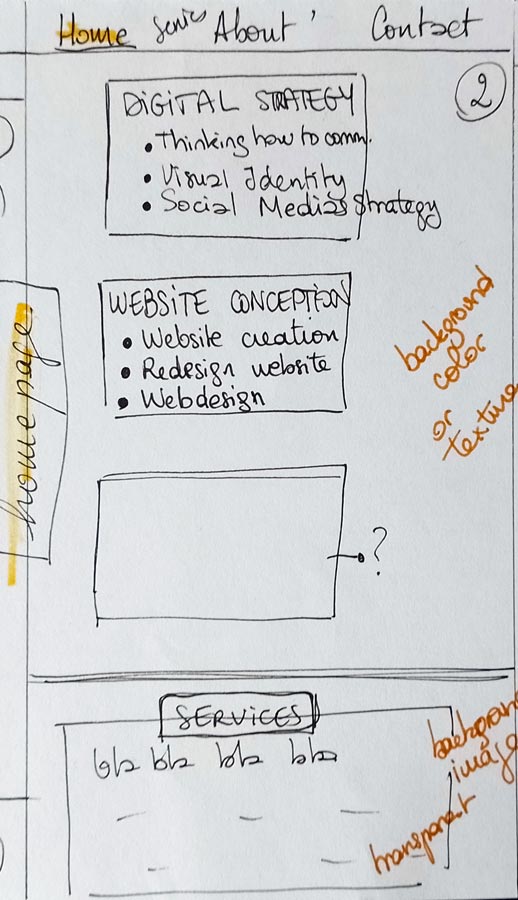 Home Servics About Contact
2
DiGiTAL STRATEGY
• Thinking how to comm.
• Visual Identity
• Social Medias Strategy
WEBSITE CONCEPTION
• Website creation
• Redesign website
• Webdesign
background
color
or
texture
home page
?
SERVICES
bla bla bla bla
background
image
transparent